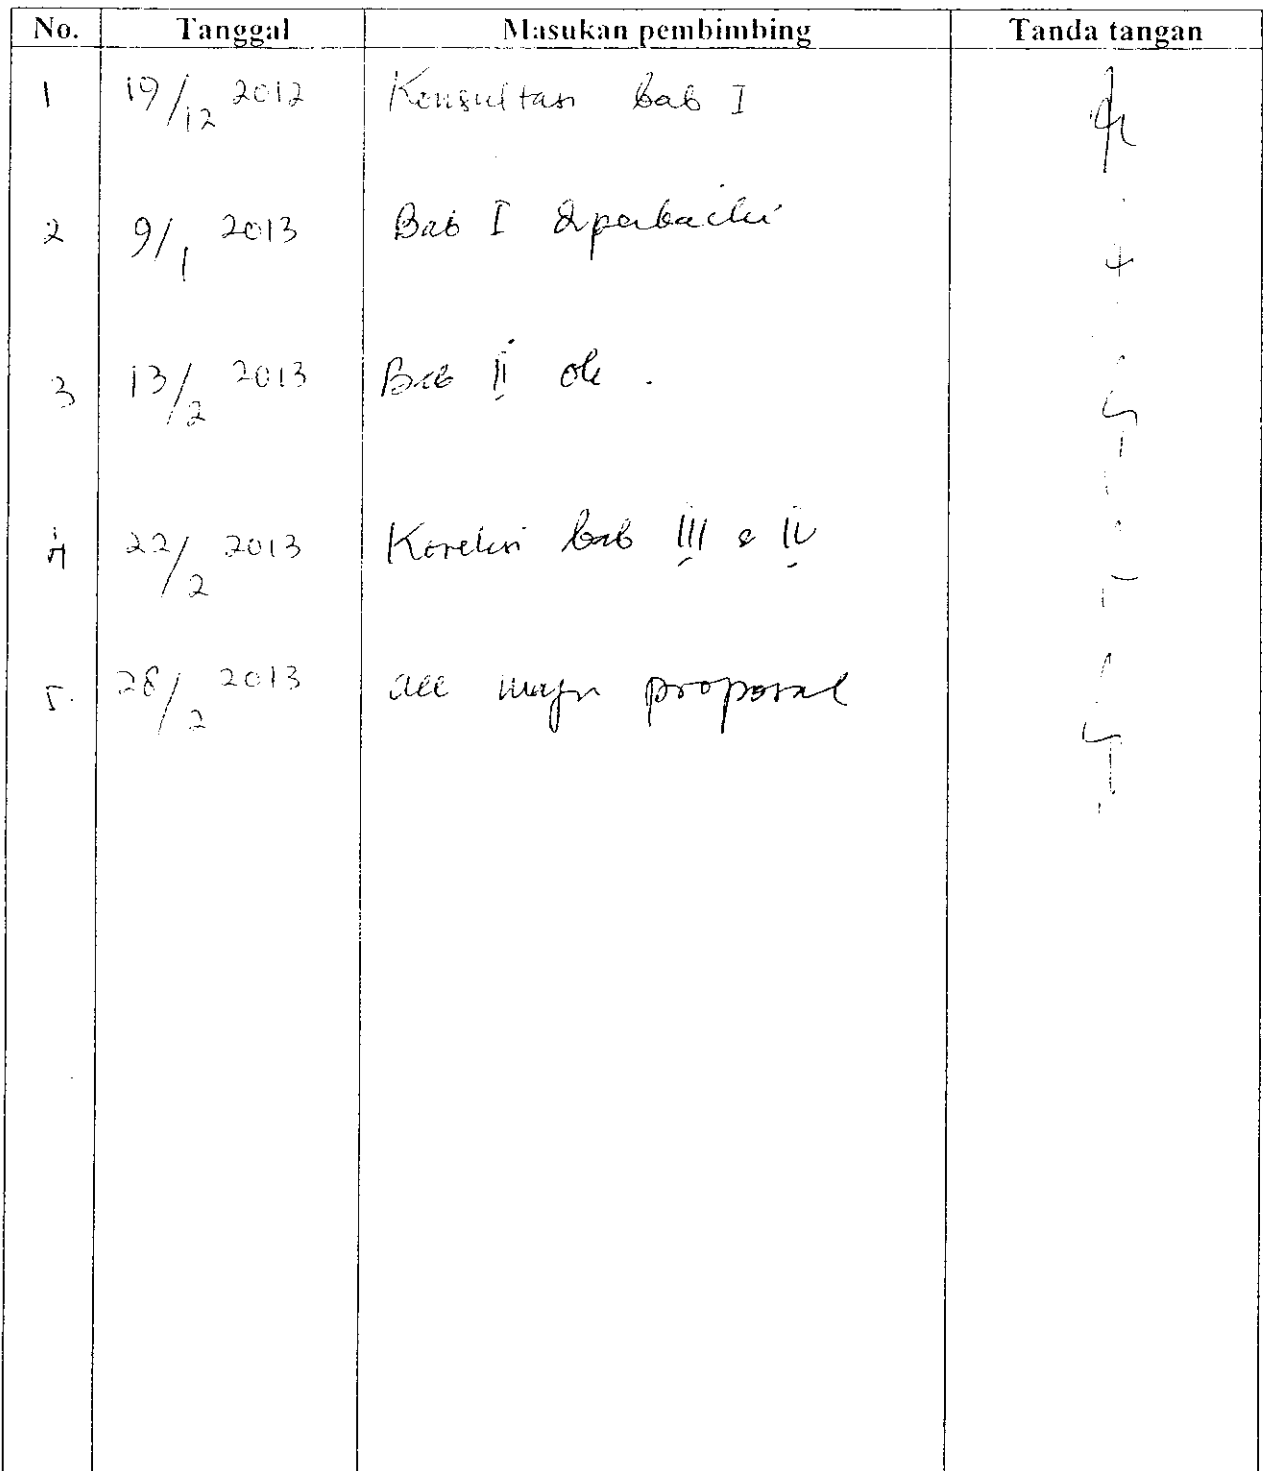 No. Tanggal Masukan pembimbing Tanda tangan
1 19/12 2012 Konsultasi bab I
2 9/1 2013 Bab I diperbaiki
3 13/2 2013 Bab II ok.
4 22/2 2013 Koreksi bab III & IV
5. 28/2 2013 acc maju proposal